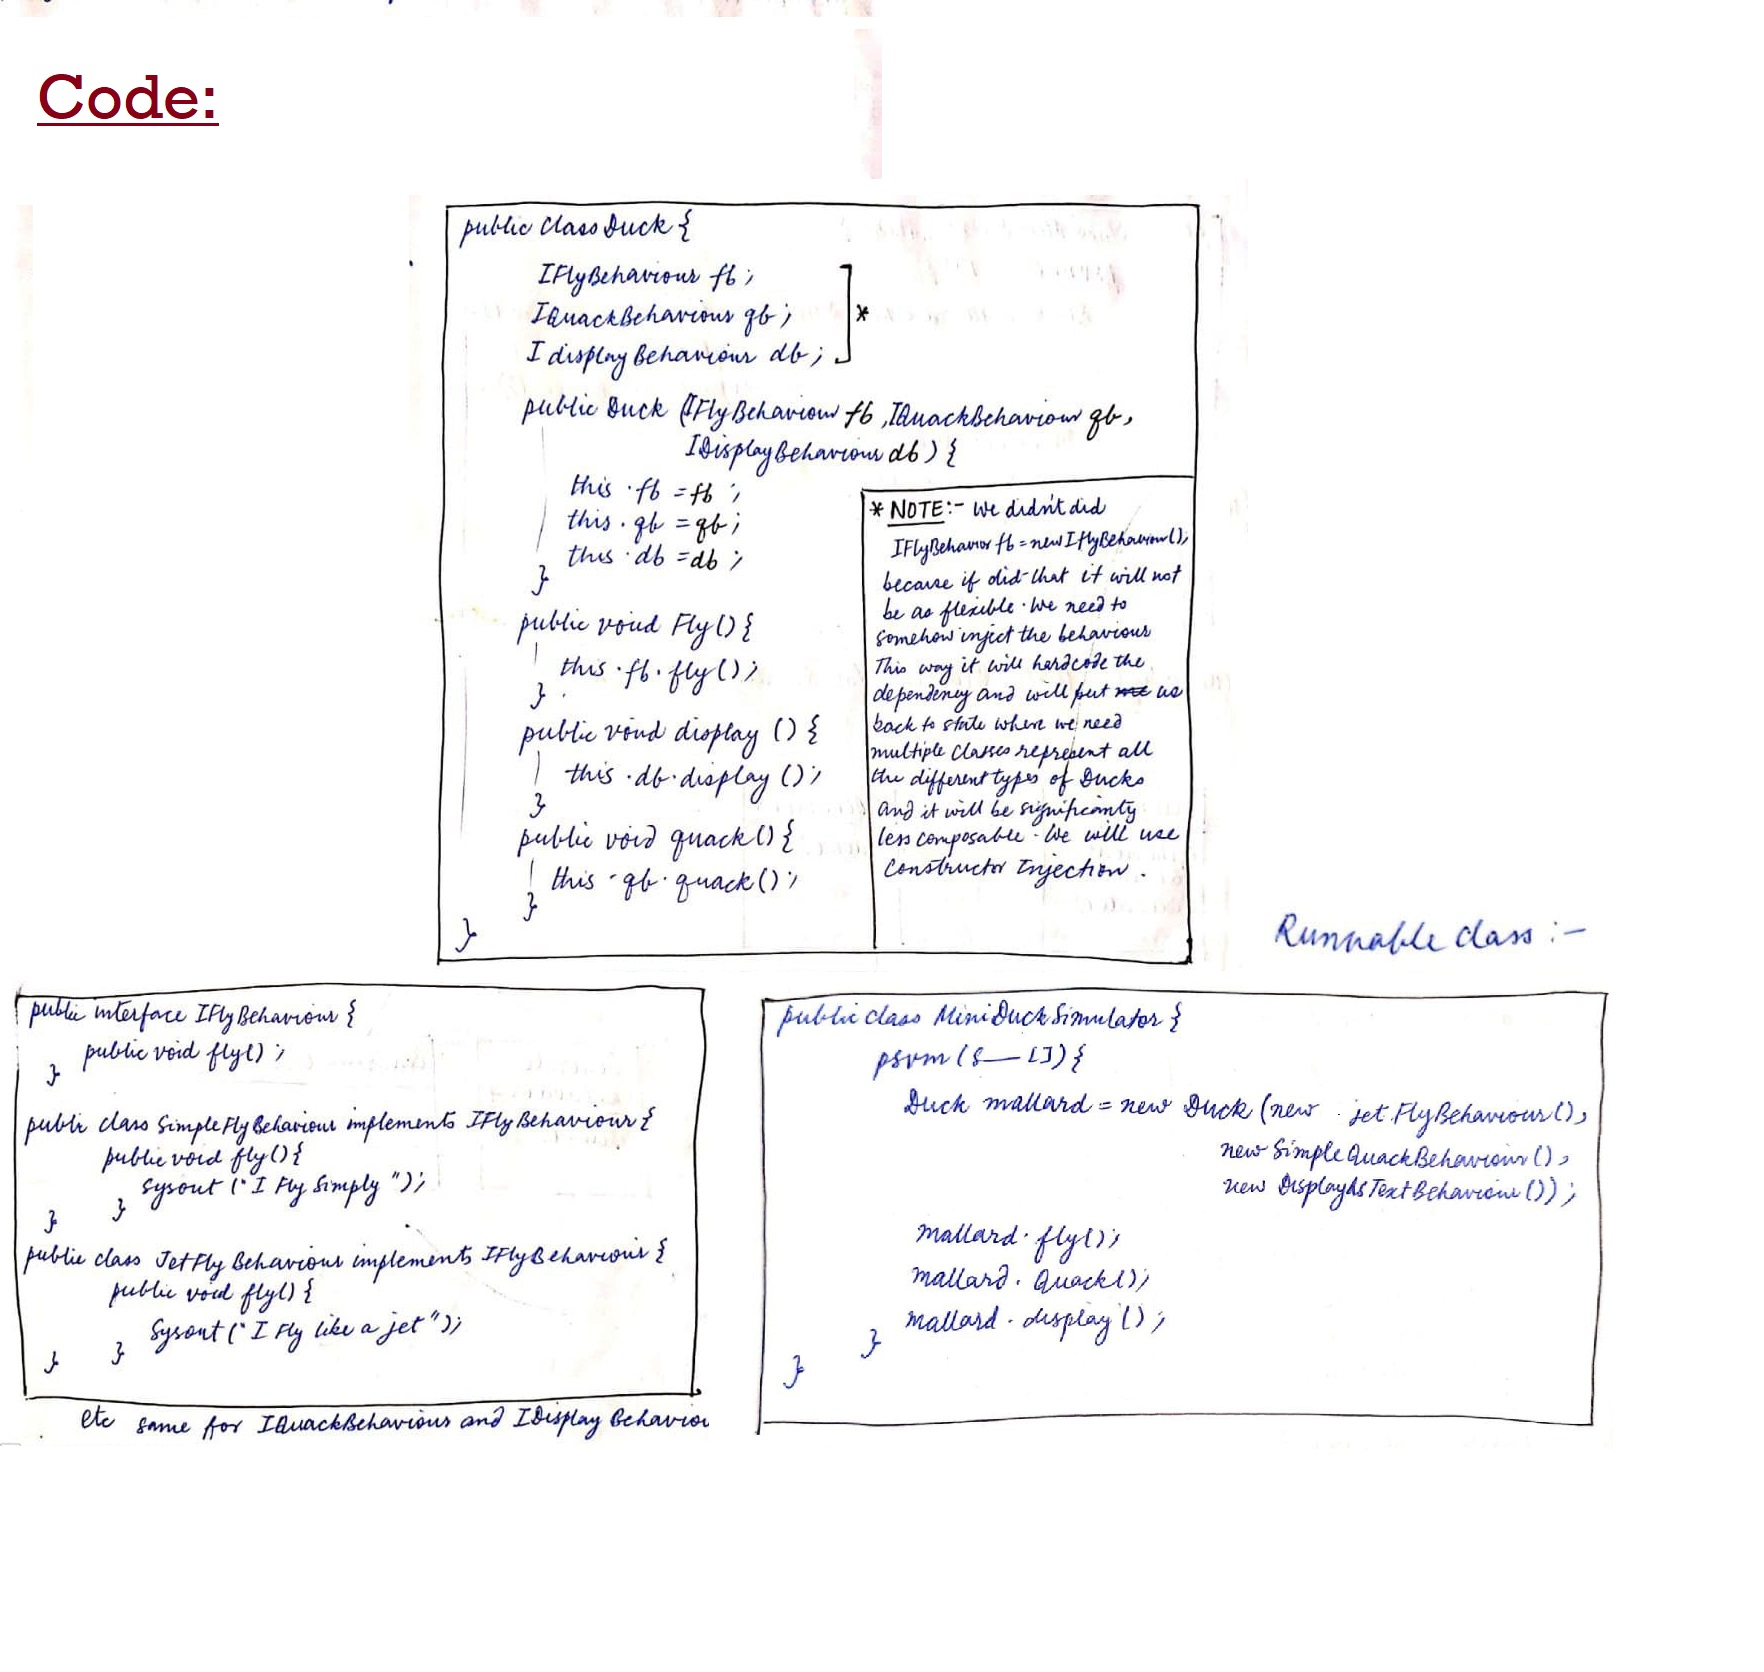 Code:
public Class Duck {
IFlyBehaviour fb;
IQuackBehaviour qb;
I display Behaviour db;
] *
public Duck (IFly Behaviour fb, IQuackBehaviour qb,
IDisplayBehaviour db) {
this.fb = fb;
this.qb = qb;
this.db = db;
}
public void Fly() {
this.fb.fly();
}
public void display () {
this.db.display ();
}
public void quack() {
this.qb.quack();
}
}
* NOTE:- We didn't did
IFlyBehavior fb = new IflyBehaviour();
because if did that it will not
be as flexible. We need to
somehow inject the behaviour
This way it will hardcode the
dependency and will put us
back to state where we need
multiple classes represent all
the different types of Ducks
and it will be significanty
less composable. We will use
Constructor Injection.
Runnable class :-
public interface IFlyBehaviour {
public void fly();
}
public class SimpleFlyBehaviour implements IFlyBehaviour {
public void fly() {
Sysout ("I Fly Simply");
}
}
public class JetFly Behaviour implements IFlyBehaviour {
public void fly() {
Sysout ("I Fly like a jet");
}
}
etc same for IQuackBehaviour and IDisplay Behavior
public class MiniDuckSimulator {
psvm (S— []) {
Duck mallard = new Duck (new jet.FlyBehaviour(),
new SimpleQuackBehaviour(),
new DisplayAsTextBehaviour());
mallard.fly();
mallard.Quack();
mallard.display();
}
}